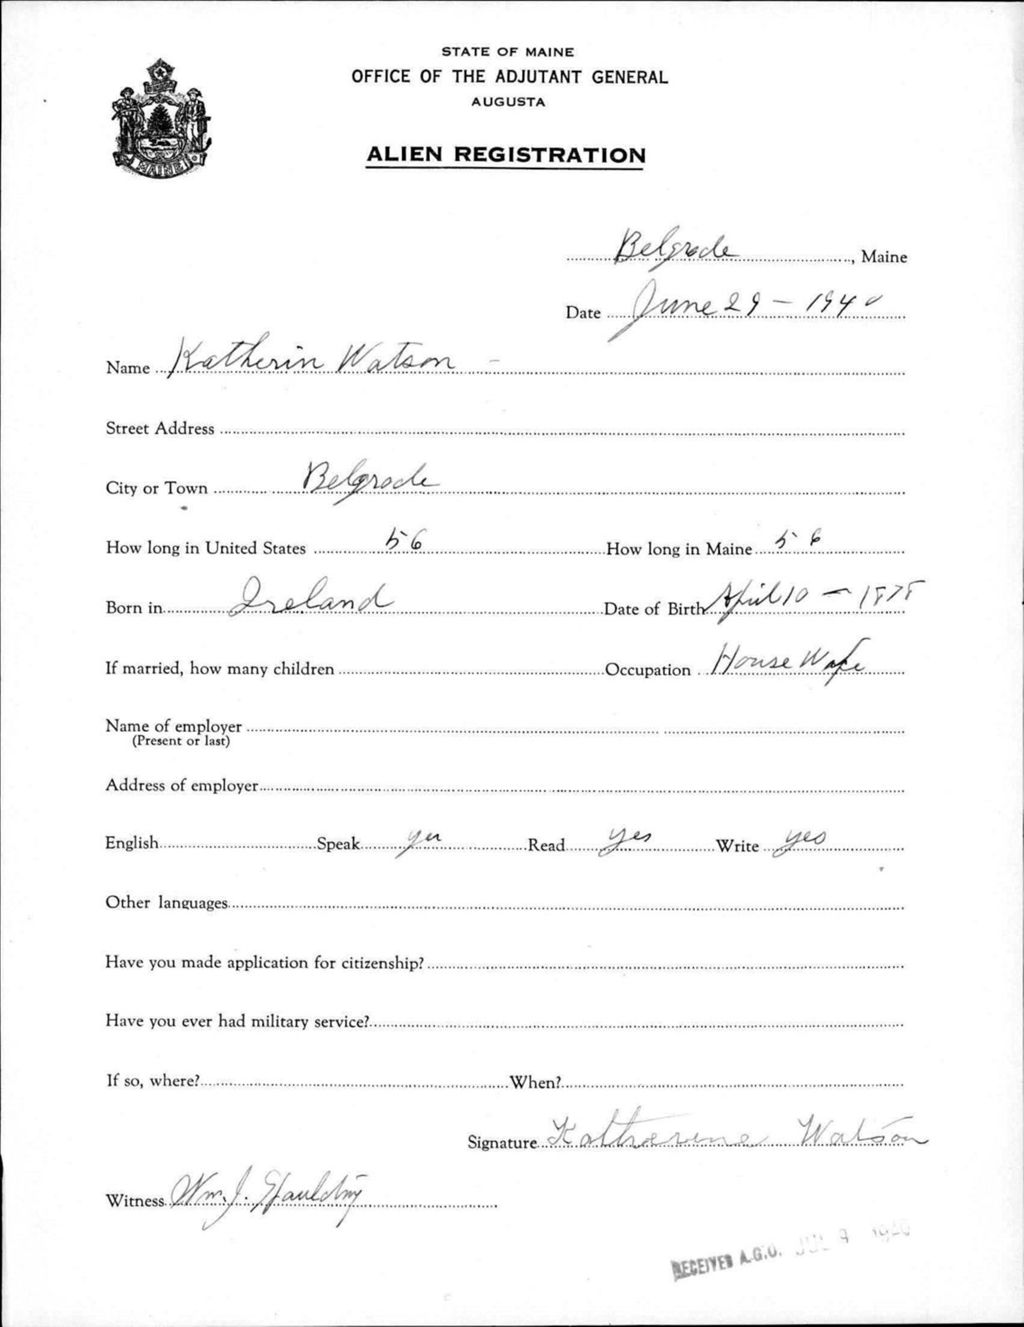 STATE OF MAINE
OFFICE OF THE ADJUTANT GENERAL
AUGUSTA
ALIEN REGISTRATION
MAINE
Belgrade, Maine
Date June 29 - 1940
Name Katherin Watson -
Street Address
City or Town Belgrade
How long in United States 56 How long in Maine 56
Born in Ireland Date of Birth April 10 - 1878
If married, how many children Occupation House Wife
Name of employer
(Present or last)
Address of employer
English Speak yes Read yes Write yes
Other languages
Have you made application for citizenship?
Have you ever had military service?
If so, where? When?
Signature Katherene Watson
Witness Wm. J. Spaulding
RECEIVED A.G.O. JUL 9 1940